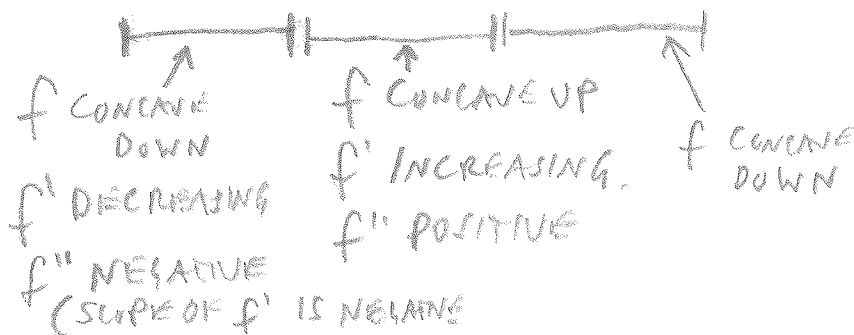 f CONCAVE
DOWN
f' DECREASING
f'' NEGATIVE
(SLOPE OF f' IS NEGATIVE
f CONCAVE UP
f' INCREASING.
f'' POSITIVE
f CONCAVE
DOWN